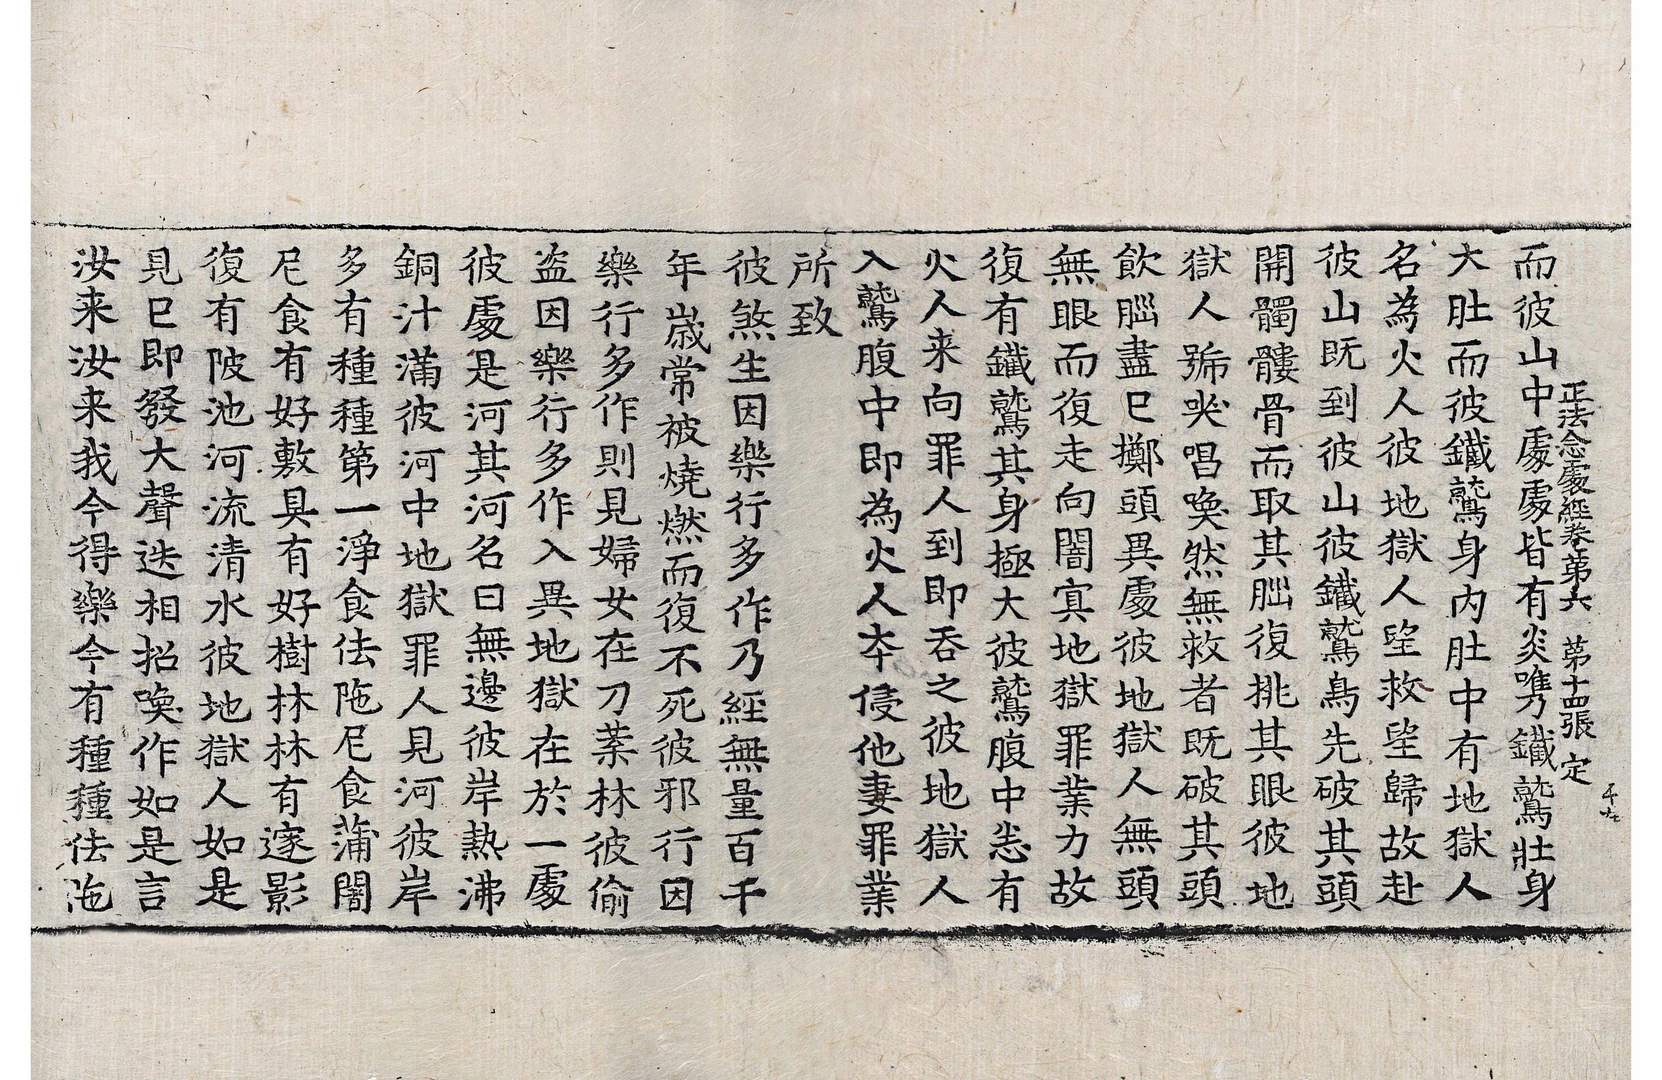 正法念處經卷第六　第十四張　定
而彼山中處處皆有炎㭰鐵鷲壯身
大肚而彼鐵鷲身內肚中有地獄人
名為火人彼地獄人望救望歸故赴
彼山既到彼山彼鐵鷲鳥先破其頭
開髑髏骨而取其𦛁復挑其眼彼地
獄人號哭唱喚然無救者既破其頭
飲𦛁盡已擲頭異處彼地獄人無頭
無眼而復走向闇寘地獄罪業力故
復有鐵鷲其身極大彼鷲腹中悉有
火人来向罪人到即吞之彼地獄人
入鷲腹中即為火人本侵他妻罪業
所致
彼煞生因樂行多作乃經無量百千
年歲常被燒燃而復不死彼邪行因
樂行多作則見婦女在刀葉林彼偷
盜因樂行多作入異地獄在於一處
彼處是河其河名曰無邊彼岸熱沸
銅汁滿彼河中地獄罪人見河彼岸
多有種種第一淨食佉陁尼食蒲闍
尼食有好敷具有好樹林林有邃影
復有陂池河流清水彼地獄人如是
見已即發大聲迭相招喚作如是言
汝来汝来我今得樂今有種種佉陁